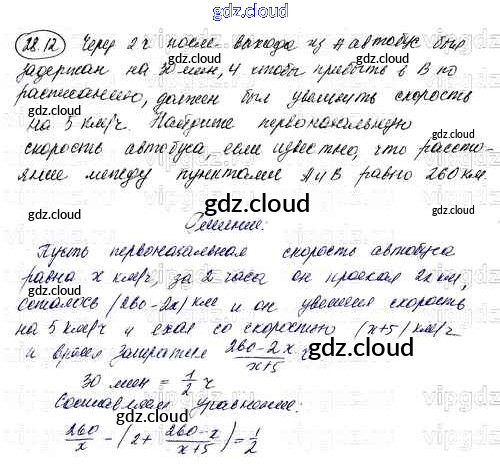 gdz.cloud gdz.cloud
28.12 Через 2 ч после выхода из A автобус был
задержан на 30 мин, и чтобы прибыть в B по
расписанию, должен был увеличить скорость
на 5 км/ч. Найдите первоначальную
скорость автобуса, если известно, что рассто-
яние между пунктами A и B равно 260 км.
gdz.cloud
gdz.cloud
gdz.cloud
gdz.cloud
Решение:
Пусть первоначальная скорость автобуса
равна x км/ч, за 2 часа он проехал 2x км,
осталось (260-2x) км и он увеличил скорость
на 5 км/ч и ехал со скоростью (x+5) км/ч
и время затратил 260-2x / x+5 ч
gdz.cloud
gdz.cloud
gdz.cloud
gdz.cloud
30 мин = 1/2 ч
Составляем уравнение:
260/x - (2 + 260-x / x+5) = 1/2
gdz.cloud
gdz.cloud